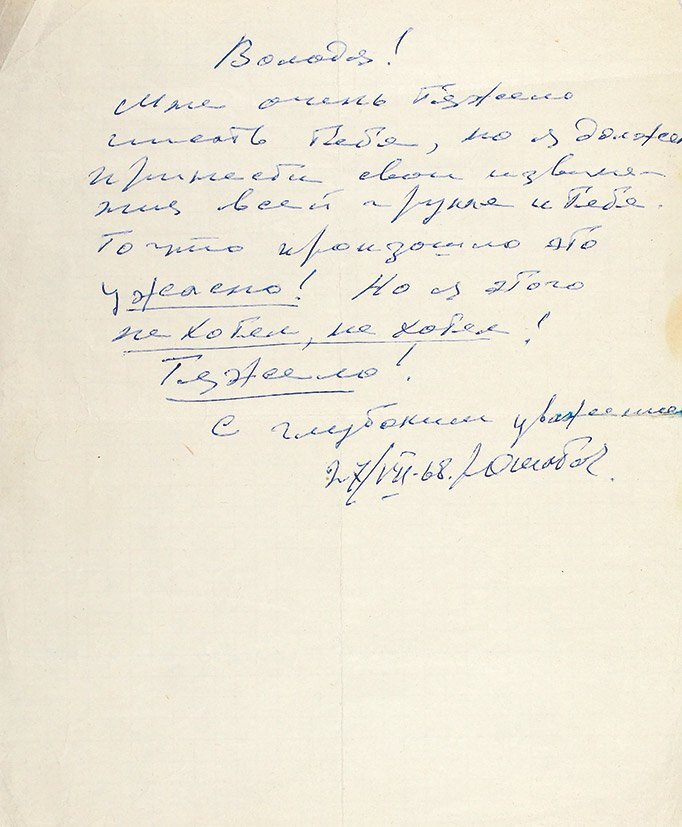 Володя!
Мне очень тяжело
писать тебе, но я должен
принести свои извине-
ния всей группе и тебе.
То что произошло это
ужасно! Но я этого
не хотел, не хотел!
Тяжело!
С глубоким уважением
27/VII-68.